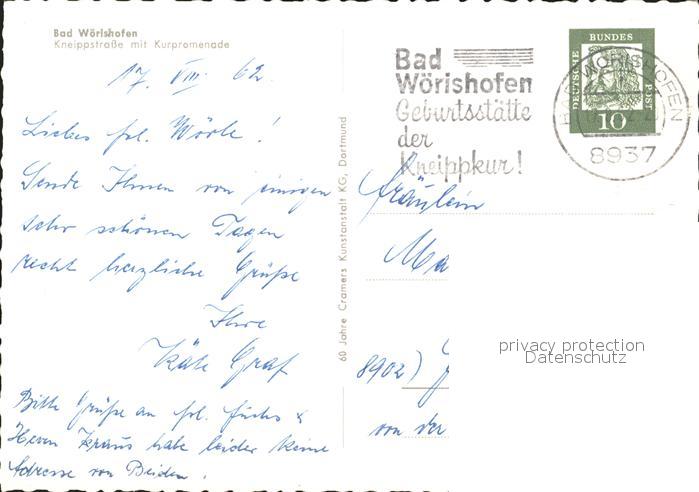 Bad Wörishofen
Kneippstraße mit Kurpromenade
17. VIII. 62.
Liebes frl. Wörle!
Sende Ihnen von einigen
sehr schönen Tagen
recht herzliche Grüße
Ihre
Käte Graf
Bitte Grüße an frl. Fuchs &
Herrn Kraus habe leider keine
Adresse von Beiden.
60 Jahre Cramers Kunstanstalt KG, Dortmund
Bad
Wörishofen
Geburtsstätte
der
Kneippkur!
DEUTSCHE BUNDESPOST
10
BAD WÖRISHOFEN
8937
Fräulein
Ma
8902)
von der
privacy protection
Datenschutz